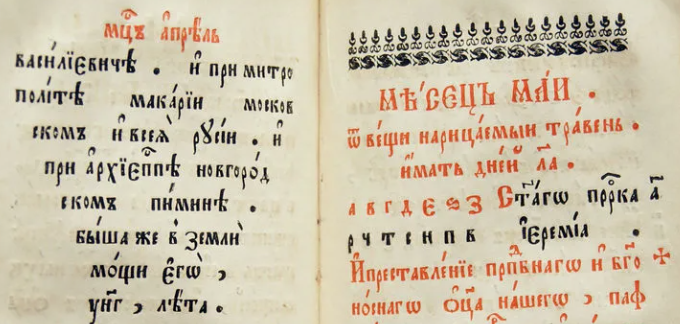 мц҇ъ а҆прі́ль
васи́лїевичѣ . и҆ при митро
поли́тѣ мака́рїи москов
скомъ и҆ всеѧ̀ рꙋсі́и . и҆
при а҆рхїеп҇пѣ новгоро́д
скомъ пи́минѣ .
бы́ша же в земли̂
мо́щи є҆гѡ̀ ,
лѣ́та .
мѣ́сецъ ма́іи .
ѿ ве́щи нарица́емыи тра́вень .
и҆́мать дне́й ла҃ .
а в г д є ѕ з Ста҃гѡ прⷪ҇рка а҃
р ч т с н п в і҆еремі́а .
И҆ преставле́нїе прпⷣбнагѡ и҆ бг҃о
но́снагѡ ѻ҆ц҃а на́шегѡ , паф